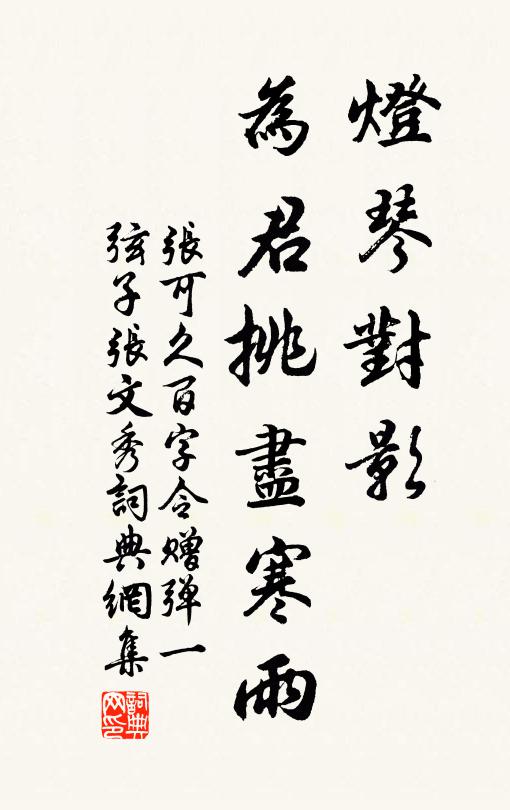 燈琴對影
為君挑盡寒雨
張可久百字令赠弹一
弦子張文秀詞典網集
詞典网印